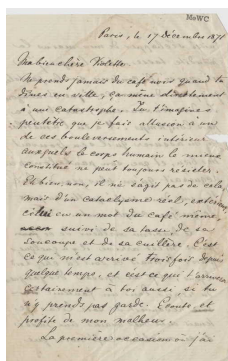 MoWC
Paris, le 17 Décembre 1871
Ma bien chère Violette
Ne prends jamais du café noir quand tu
dînes en ville, ça mène directement
à une catastrophe. Tu t'imagines
peut-être que je fais allusion à un
de ces bouleversements intérieurs
auxquels le corps humain le mieux
constitué ne peut toujours résister.
Eh bien, non, il ne s'agit pas de cela,
mais d'un cataclysme réel, extérieur,
celui en un mot du café même,
suivi de sa tasse, de sa
soucoupe et de sa cuillère. C'est
ce qui m'est arrivé trois fois depuis
quelque temps, et c'est ce qui t'arrivera
certainement à toi aussi si tu
n'y prends pas garde. Écoute, et
profite de mon malheur.
La première occasion où j'ai